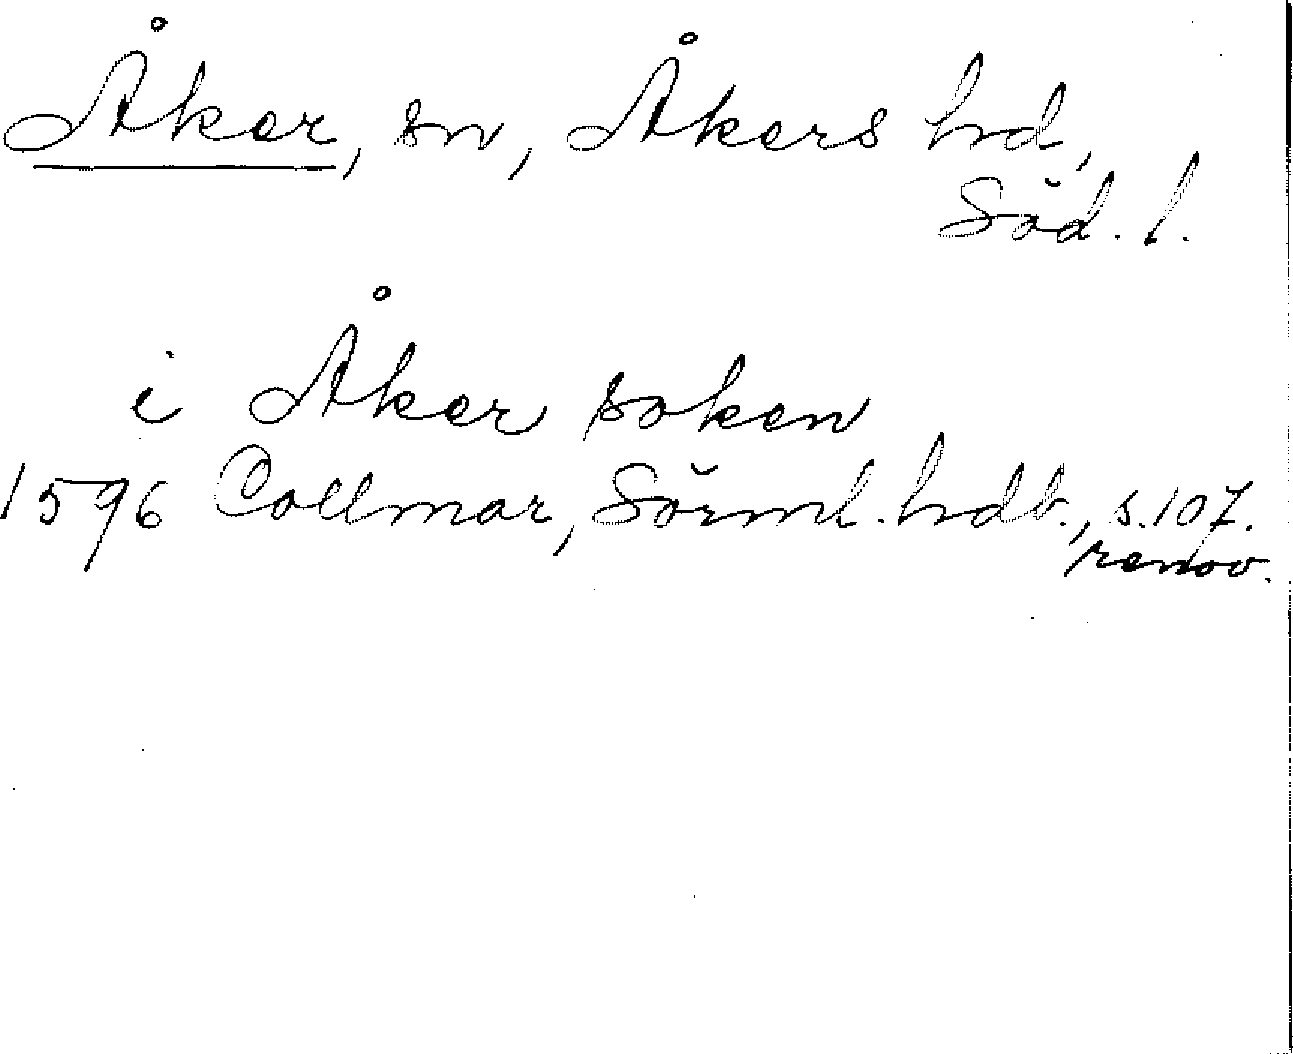 Åker, sn, Åkers hd,
Söd. l.
i Åker soken
1596 Collmar, Sörml. hdb., s. 107.
renov.